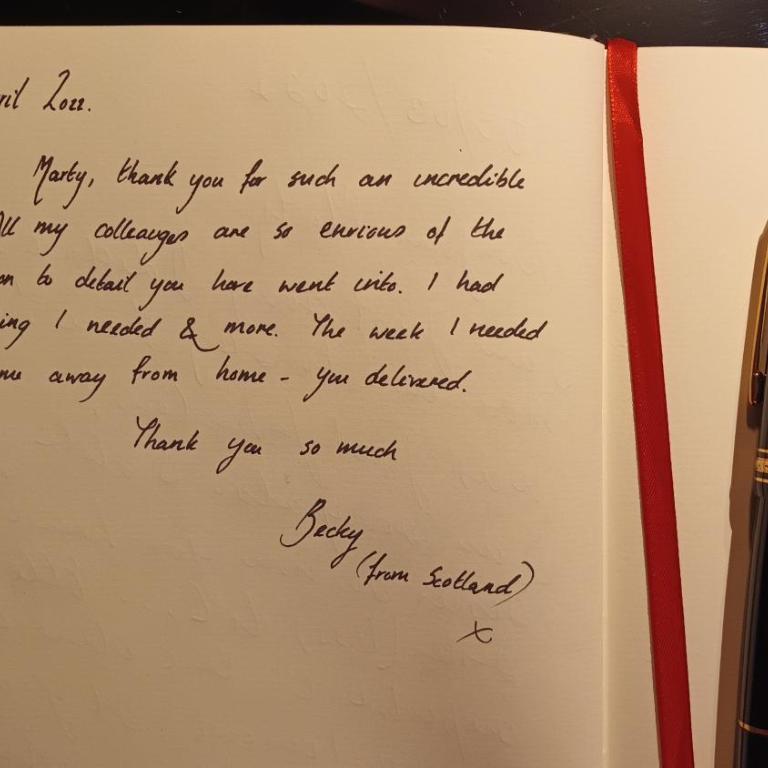 ril 2022.
Marty, thank you for such an incredible
All my colleauges are so envious of the
on to detail you have went into. I had
ing I needed & more. The week I needed
me away from home - you delivered.
Thank you so much
Becky
(from Scotland)
x